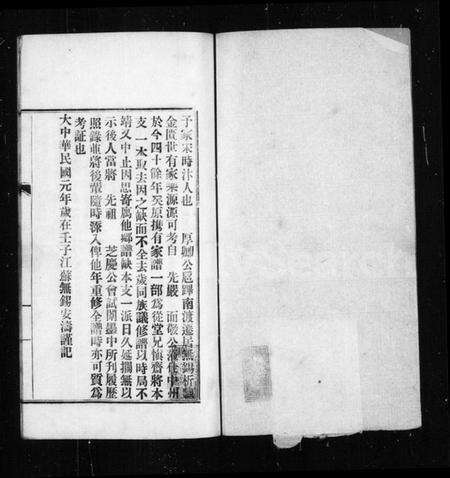 予家宋時汴人也　厚卿公扈蹕南渡遂居無錫析
金匱世有家乘源源可考自　先嚴　面敬公游仕中州
於今四十餘年矣原携有家譜一部爲從堂兄慎齋將本
支一本取去因之缺而不全去歲同族議修譜以時局不
靖又中止因思寄寓他鄉譜缺本支一派日久延擱無以
示後人當將　先祖　芝慶公會試闈墨中所刊履歷
照錄並將後輩隨時添入俾他年重修全譜時亦可質爲
考証也
大中華民國元年歲在壬子江蘇無錫安濤謹記